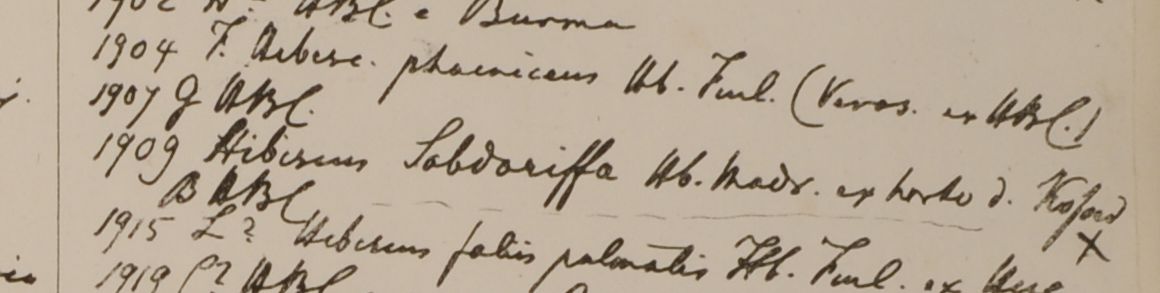 1902 HBC. e Burma
1904 F. Hibisc. phoeniceus Hb. Finl. (Veros. ex HBC.)
1907 G HBC.
1909 Hibiscus Sabdariffa Hb. Madr. ex horto d.
B HBC
1915 L? Hibiscus foliis palmatis Hb. Finl. ex
1919 HBC